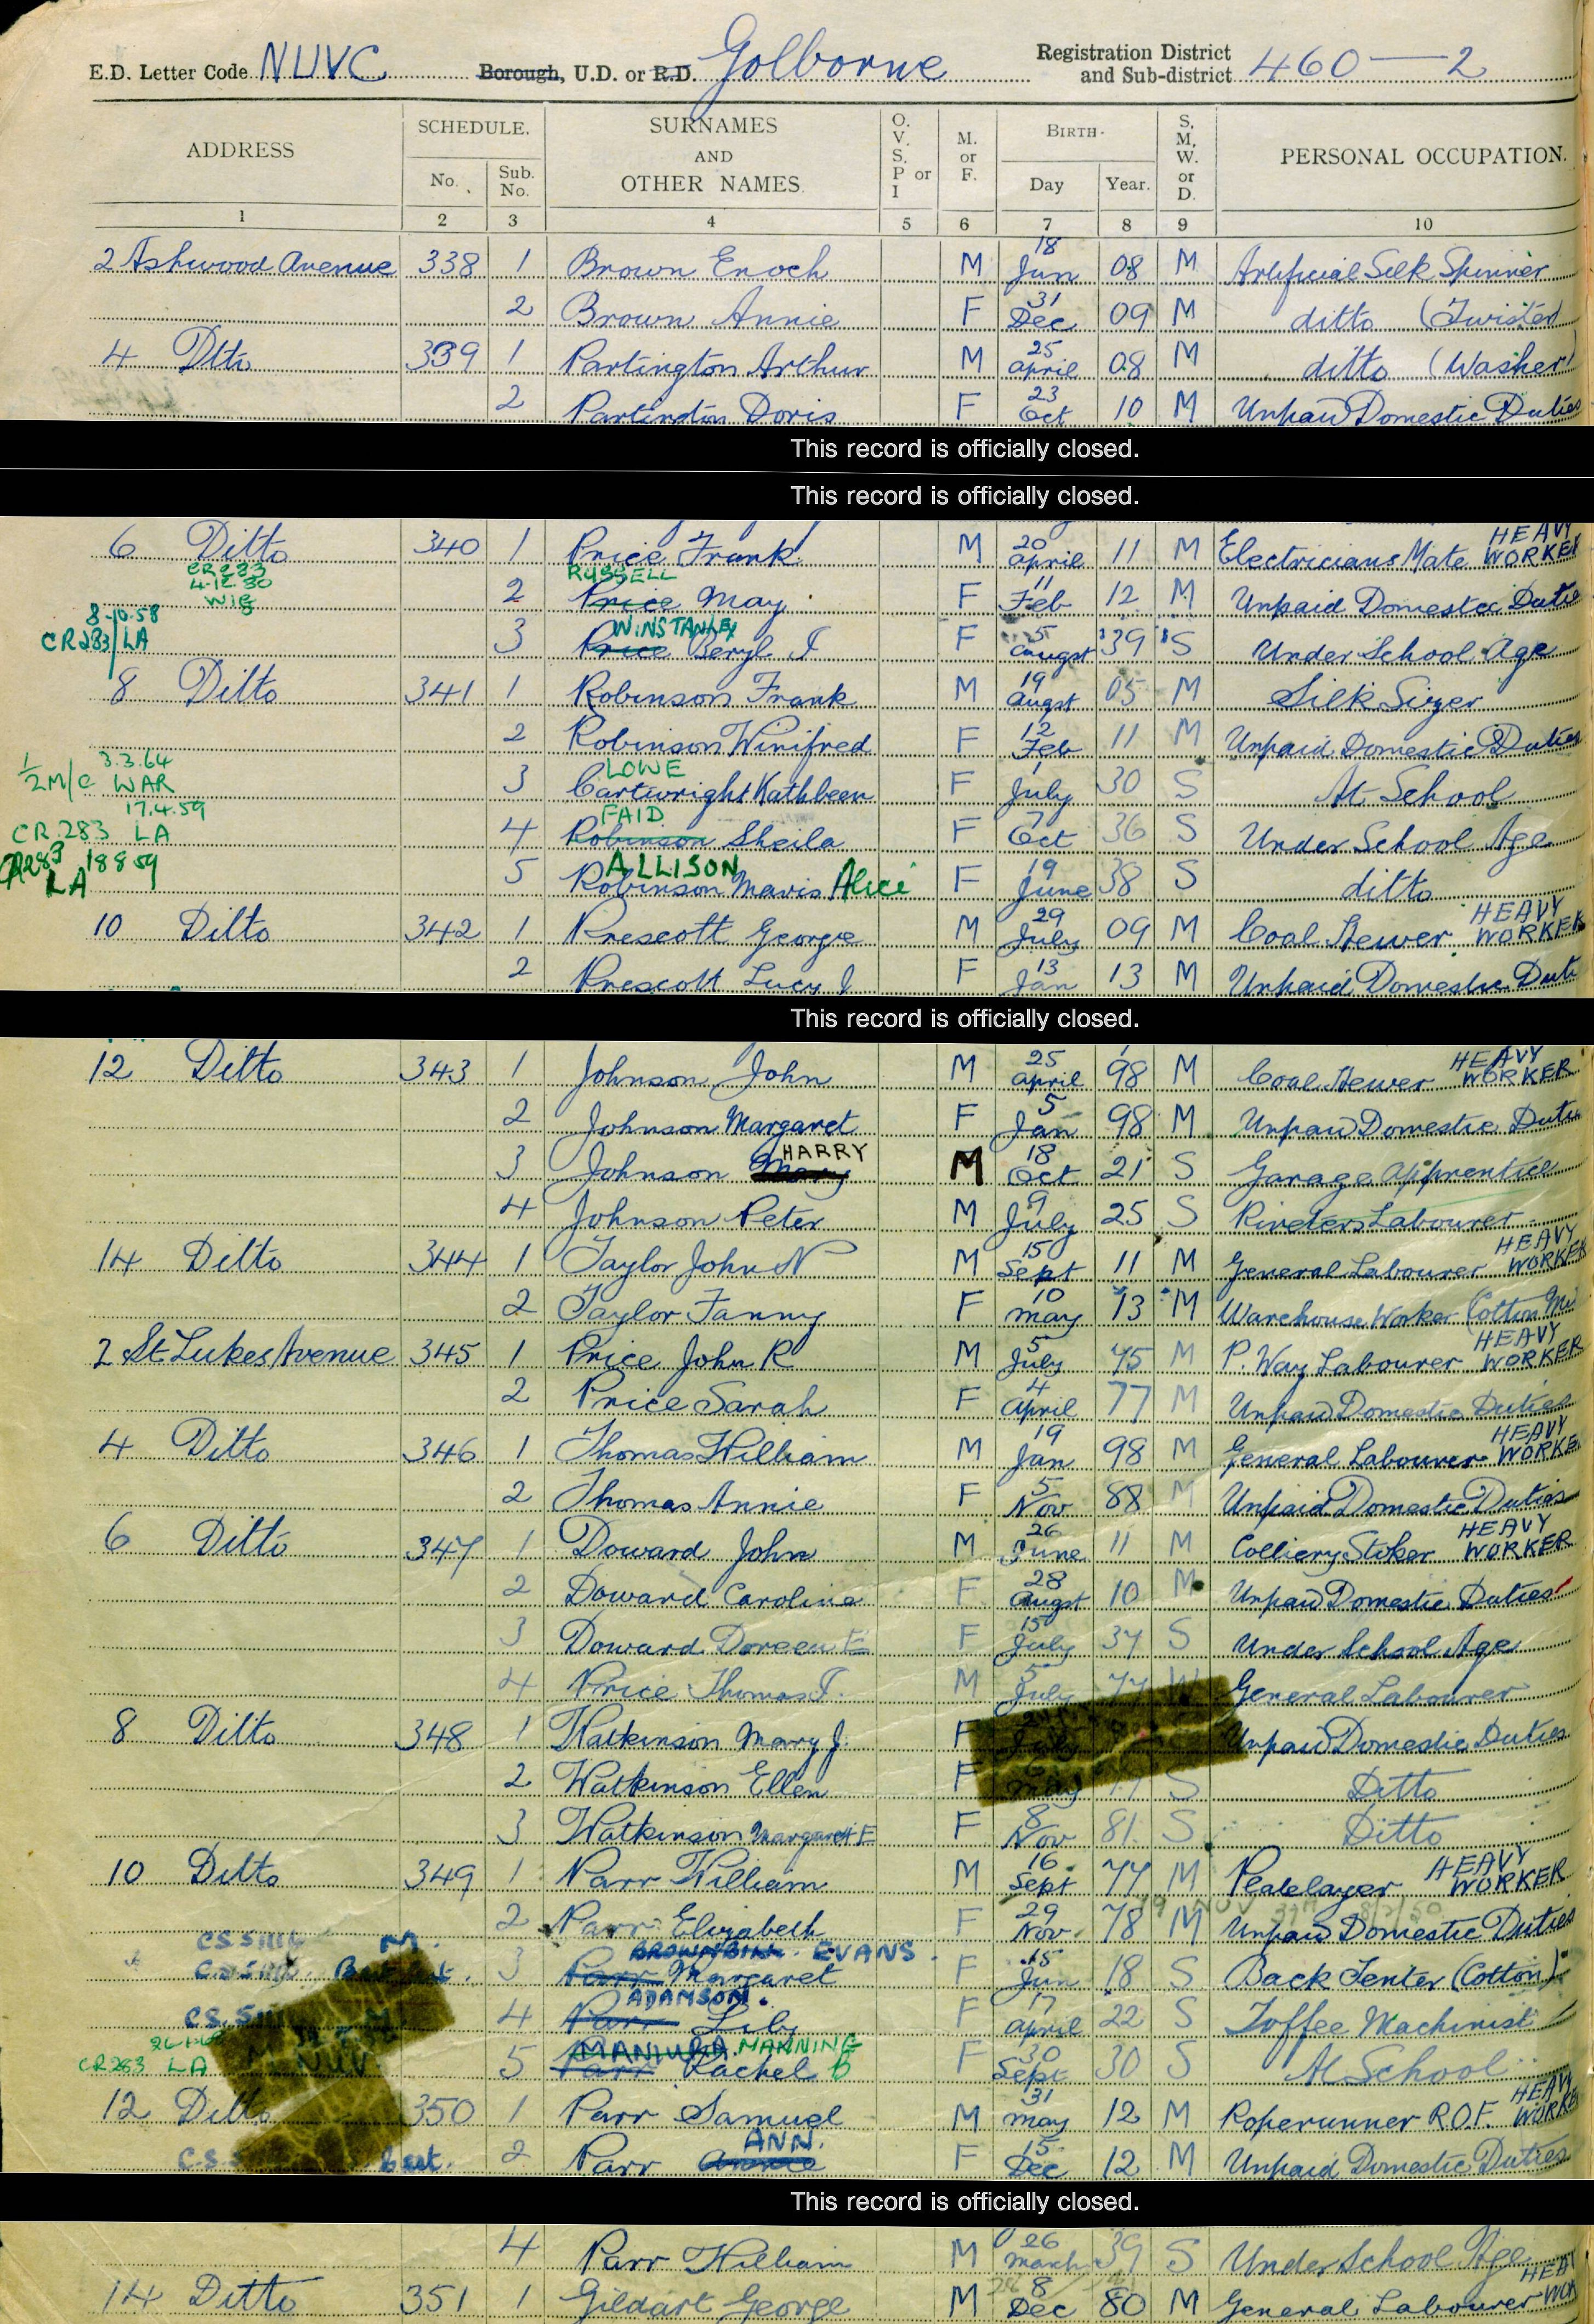 E.D. Letter Code NUVC Borough, U.D. or R.D. Golborne Registration District and Sub-district 460—2
ADDRESS SCHEDULE. SURNAMES AND OTHER NAMES O. V. S. P or I M. or F. BIRTH. S. M. W. or D. PERSONAL OCCUPATION.
No. Sub. No. Day Year.
1 2 3 4 5 6 7 8 9 10
2 Ashwood Avenue 338 1 Brown Enoch M 18 Jun 08 M Artificial Silk Spinner
2 Brown Annie F 31 Dec 09 M ditto (Twister)
4 Ditto 339 1 Partington Arthur M 25 April 08 M ditto (Washer)
2 Partington Doris F 23 Oct 10 M Unpaid Domestic Duties
This record is officially closed.
This record is officially closed.
6 Ditto 340 1 Price Frank M 20 April 11 M Electricians Mate HEAVY WORKER
CR283 4.12.80 WIG RUSSELL
2 Price May F 11 Feb 12 M Unpaid Domestic Dutie
8.10.58 CR283/LA WINSTANLEY
3 Price Beryl I F 5 Augst 39 S Under School Age
8 Ditto 341 1 Robinson Frank M 19 Augst 05 M Silk Sizer
2 Robinson Winifred F 12 Feb 11 M Unpaid Domestic Duties
1/2 M/C 3.3.64 WAR LOWE
3 Cartwright Kathleen F 1 July 30 S At School
17.4.59 CR.283 LA FAID
4 Robinson Sheila F 7 Oct 36 S Under School Age
CR283 18 8 59 LA ALLISON
5 Robinson Mavis Alice F 19 June 38 S ditto
10 Ditto 342 1 Prescott George M 29 July 09 M Coal Hewer HEAVY WORKER
2 Prescott Lucy J F 13 Jan 13 M Unpaid Domestic Duti
This record is officially closed.
12 Ditto 343 1 Johnson John M 25 April 98 M Coal Hewer HEAVY WORKER
2 Johnson Margaret F 5 Jan 98 M Unpaid Domestic Dutie
3 Johnson HARRY M 18 Oct 21 S Garage Apprentice
4 Johnson Peter M 9 July 25 S Riveters Labourer
14 Ditto 344 1 Taylor John N M 15 Sept 11 M General Labourer HEAVY WORKER
2 Taylor Fanny F 10 May 13 M Warehouse Worker (Cotton Mi
2 St Lukes Avenue 345 1 Price John R M 5 July 75 M P. Way Labourer HEAVY WORKER
2 Price Sarah F 4 April 77 M Unpaid Domestic Duties
4 Ditto 346 1 Thomas William M 19 Jan 98 M General Labourer HEAVY WORKE
2 Thomas Annie F 5 Nov 88 M Unpaid Domestic Duties
6 Ditto 347 1 Doward John M 26 June 11 M Colliery Stoker HEAVY WORKER
2 Doward Caroline F 28 Augst 10 M Unpaid Domestic Duties
3 Doward Doreen E F 15 July 37 S Under School Age
4 Price Thomas J. M 5 July 77 W General Labourer
8 Ditto 348 1 Watkinson Mary J. F July Unpaid Domestic Duties
2 Watkinson Ellen F May S Ditto
3 Watkinson Margaret E F 8 Nov 81 S Ditto
10 Ditto 349 1 Parr William M 16 Sept 77 M Platelayer HEAVY WORKER
2 Parr Elizabeth F 29 Nov 78 M Unpaid Domestic Duties
BROWNBILL. EVANS
3 Parr Margaret F 15 Jun 18 S Back Tenter (Cotton)
ADAMSON.
4 Parr Lily F 17 April 22 S Toffee Machinist
CR283 LA NUV MANNING
5 Parr Rachel B F 30 Sept 30 S At School
12 Ditto 350 1 Parr Samuel M 31 May 12 M Roperunner R.O.F. HEAVY WORKE
ANN.
2 Parr Annie F 15 Dec 12 M Unpaid Domestic Duties
This record is officially closed.
4 Parr William M 26 March 39 S Under School Age
14 Ditto 351 1 Gildart George M 8 Dec 80 M General Labourer HEA WOR